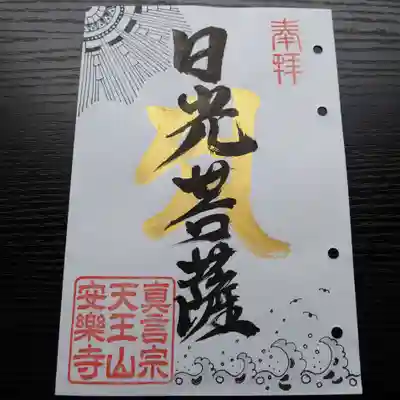 奉拝
日光菩薩
真言宗
天王山
安樂寺